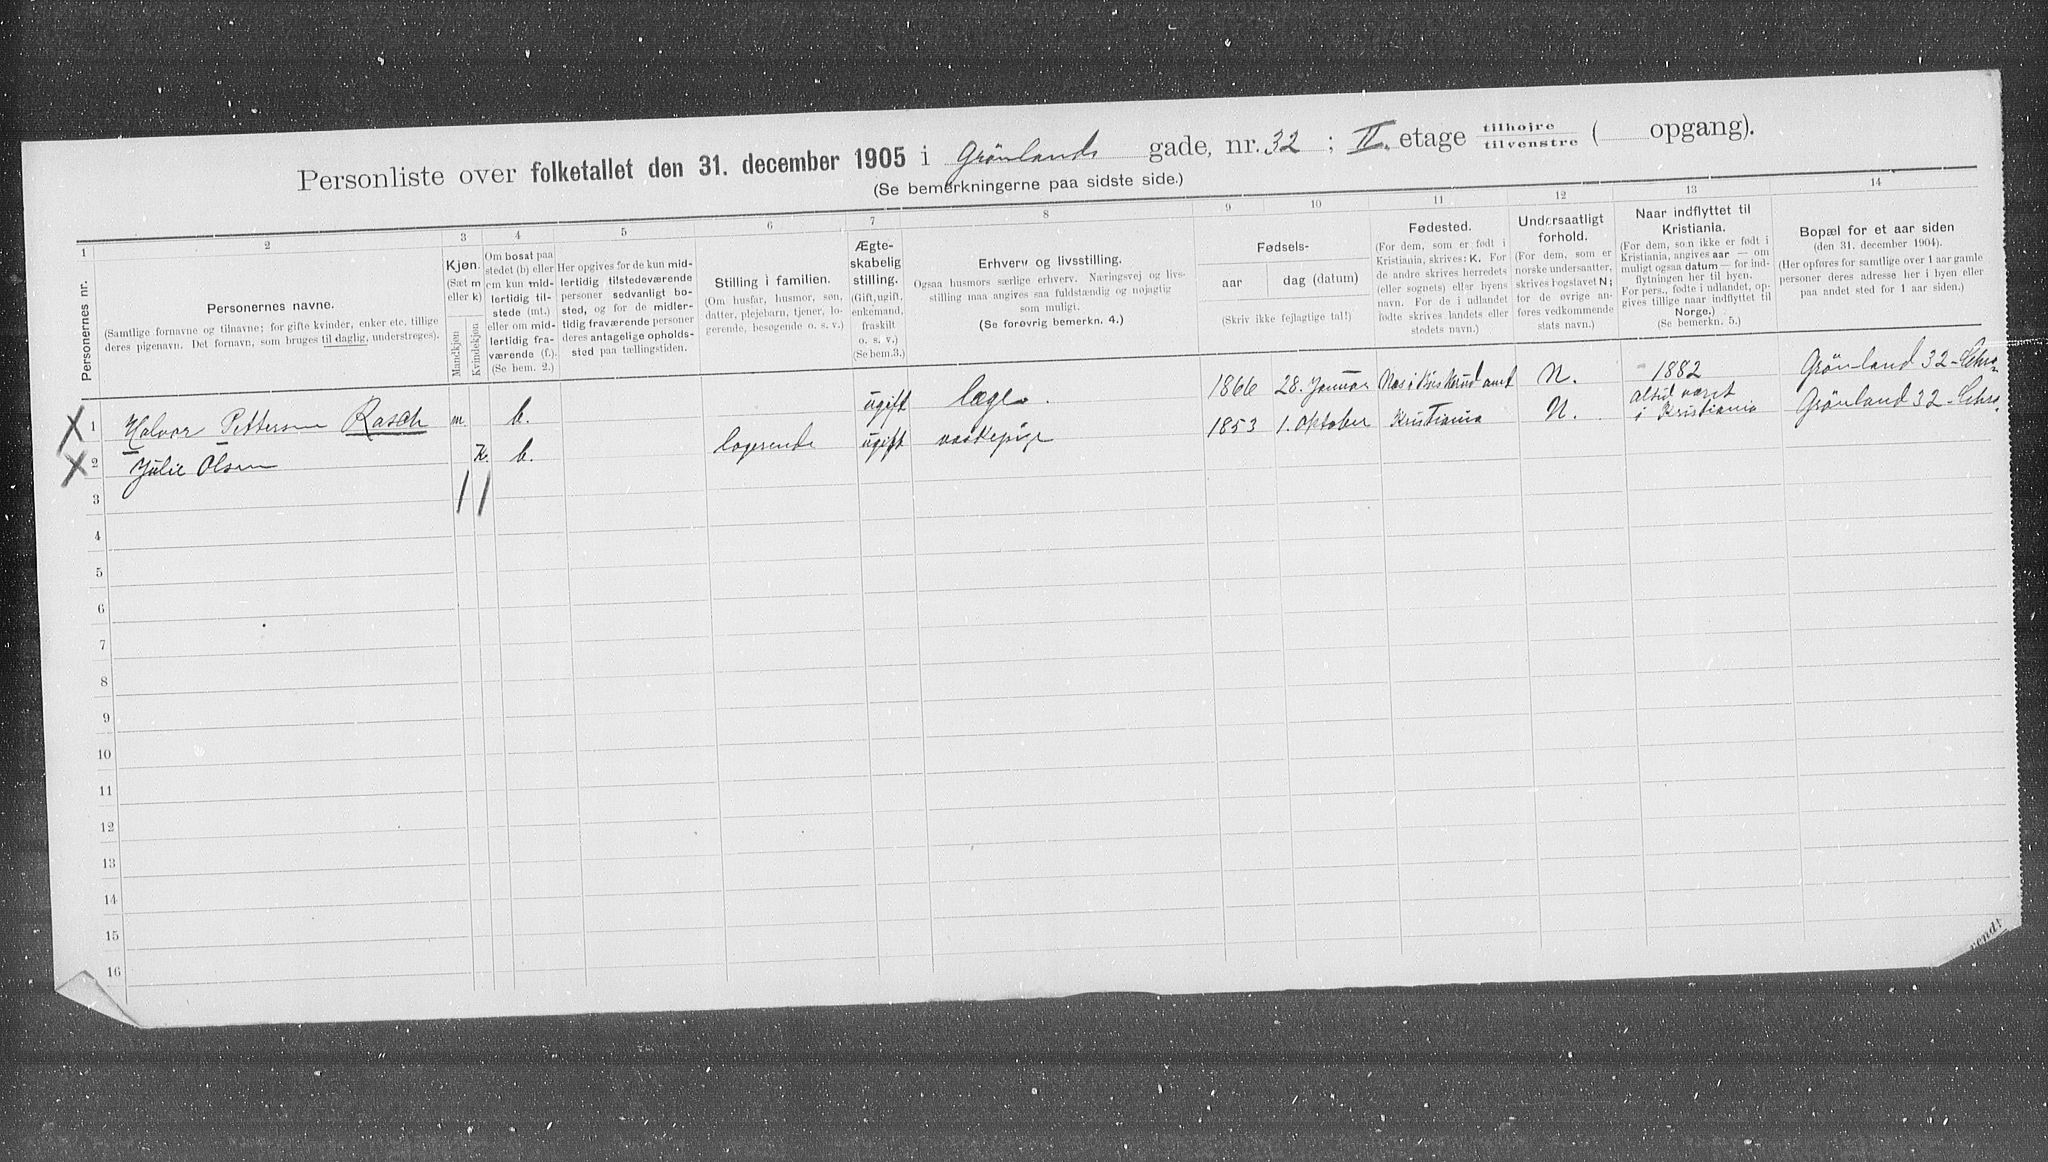 Personliste over folketallet den 31. december 1905 i Grönlands gade, nr. 32 ; II. etage tilhøjre tilvenstre ( opgang).
(Se bemerkningerne paa sidste side.)
1 2 3 4 5 6 7 8 9 10 11 12 13 14
Personernes nr.
Personernes navne.
(Samtlige fornavne og tilnavne; for gifte kvinder, enker etc. tillige
deres pigenavn. Det fornavn, som bruges til daglig, understreges).
Kjøn.
(Sæt m
eller k)
Mandkjøn
Kvindekjøn
Om bosat paa
stedet (b) eller
om kun mid-
lertidig til-
stede (mt.)
eller om mid-
lertidig fra-
værende (f.).
(Se bem. 2.)
Her opgives for de kun mid-
lertidig tilstedeværende
personer sedvanligt bo-
sted, og for de midler-
tidig fraværende personer
deres antagelige opholds-
sted paa tællingstiden.
Stilling i familien.
(Om husfar, husmor, søn,
datter, plejebarn, tjener, lo-
gerende, besøgende o. s. v.)
Ægte-
skabelig
stilling.
(Gift, ugift,
enkemand,
fraskilt
o. s. v.)
(Se bem.3.)
Erhverv og livsstilling.
Ogsaa husmors særlige erhverv. Næringsvej og livs-
stilling maa angives saa fuldstændig og nøjagtig
som muligt.
(Se forøvrig bemerkn. 4.)
Fødsels-
aar
dag (datum)
(Skriv ikke fejlagtige tal!)
Fødested.
(For dem, som er født i
Kristiania, skrives: K. For
de andre skrives herredets
(eller sognets) eller byens
navn. For de i udlandet
fødte skrives landets eller
stedets navn.)
Undersaatligt
forhold.
(For dem, som er
norske undersaatter,
skrives bogstavet N;
for de øvrige an-
føres vedkommende
stats navn.)
Naar indflyttet til
Kristiania.
(For dem, som ikke er født i
Kristiania, angives aar — om
muligt ogsaa datum — for ind-
flytningen her til byen.
For pers., fødte i udlandet, op-
gives tillige naar indflyttet til
Norge.)
(Se bemerkn. 5.)
Bopæl for et aar siden
(den 31. december 1904).
(Her opføres for samtlige over 1 aar gamle
personer deres adresse her i byen eller
paa andet sted for 1 aar siden.)
X 1 Halvor Pettersen Rasch m b. ugift læge. 1866 28. Januar Næs i Buskerud amt N. 1882 Grönland 32 - Chra.
X 2 Julie Olsen K. b. logerende ugift vaskepige 1853 1. Oktober Kristiania N. altid været i Kristiania Grönland 32 - Chra.
3
4
5
6
7
8
9
10
11
12
13
14
15
16
vendt